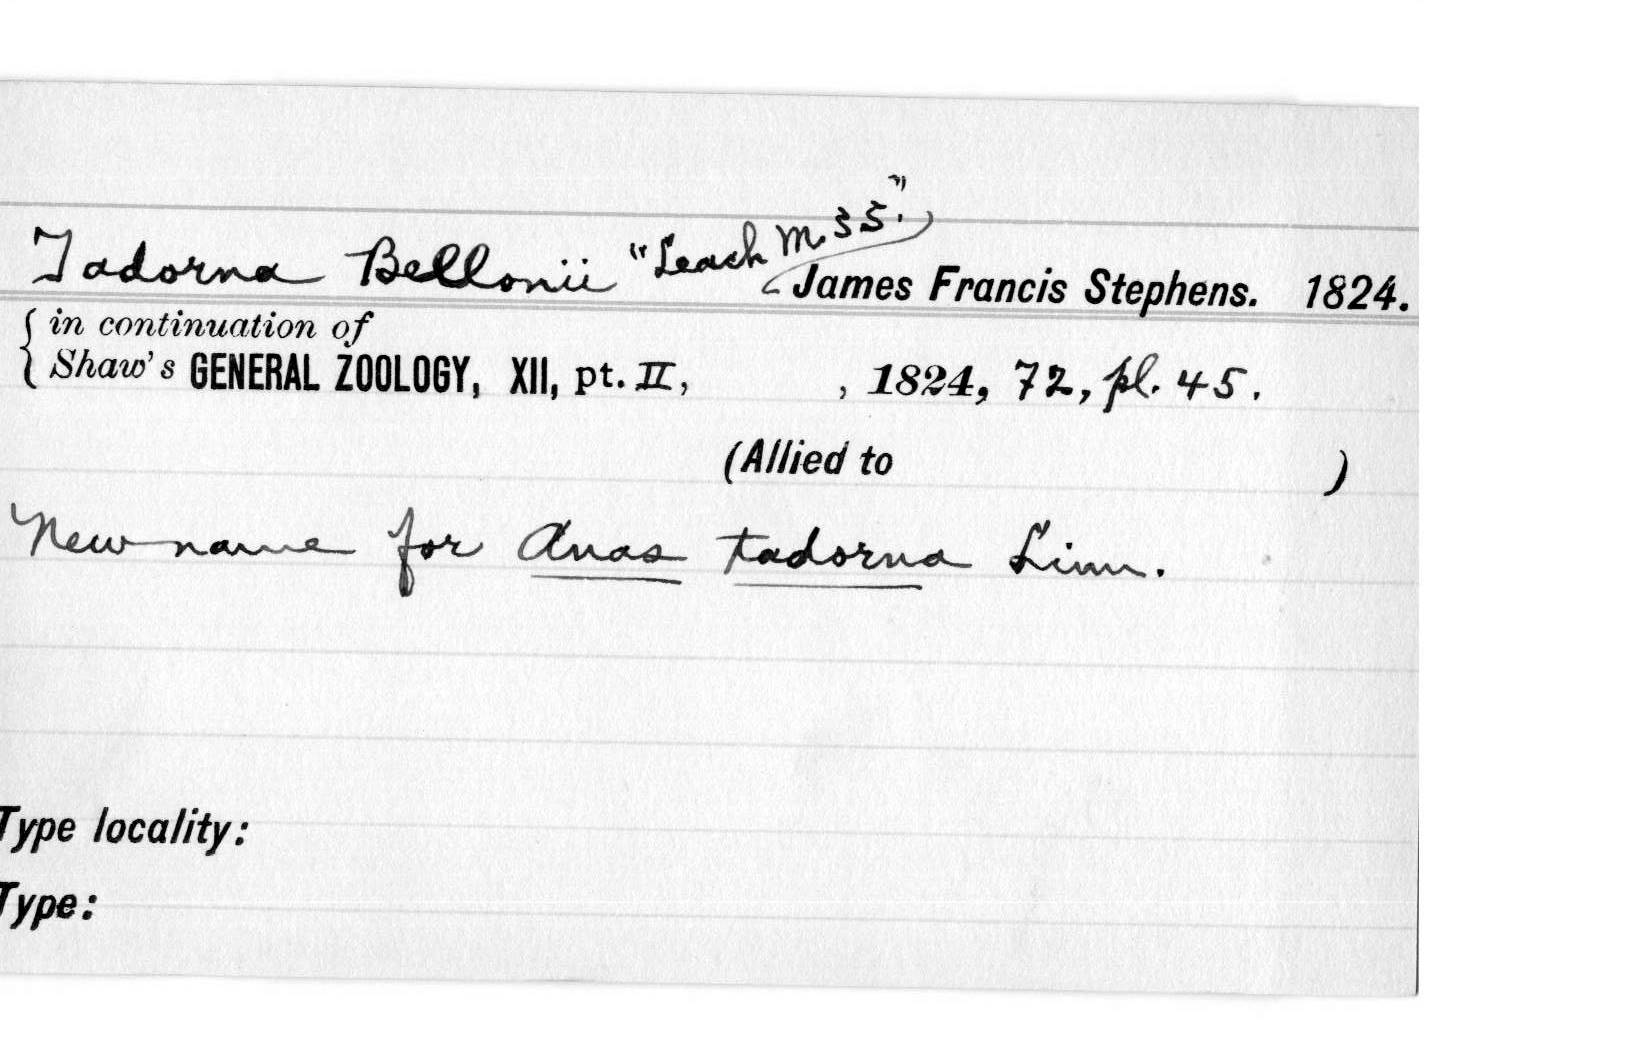 Tadorna Bellonii "Leach M.SS." James Francis Stephens. 1824.
in continuation of
Shaw's GENERAL ZOOLOGY, XII, pt. II, , 1824, 72, pl. 45.
(Allied to )
New name for Anas tadorna Linn.
Type locality:
Type: